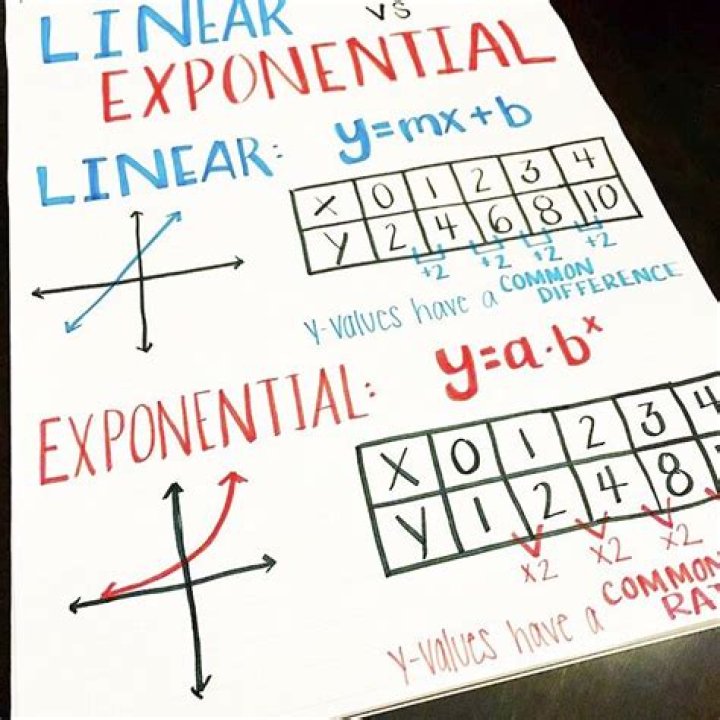 LINEAR vs
EXPONENTIAL
LINEAR: y=mx+b
X 0 1 2 3 4
Y 2 4 6 8 10
+2 +2 +2 +2
y-values have a COMMON
DIFFERENCE
EXPONENTIAL: y=a·bˣ
X 0 1 2 3 4
Y 1 2 4 8
x2 x2 x2
y-values have a COMMON